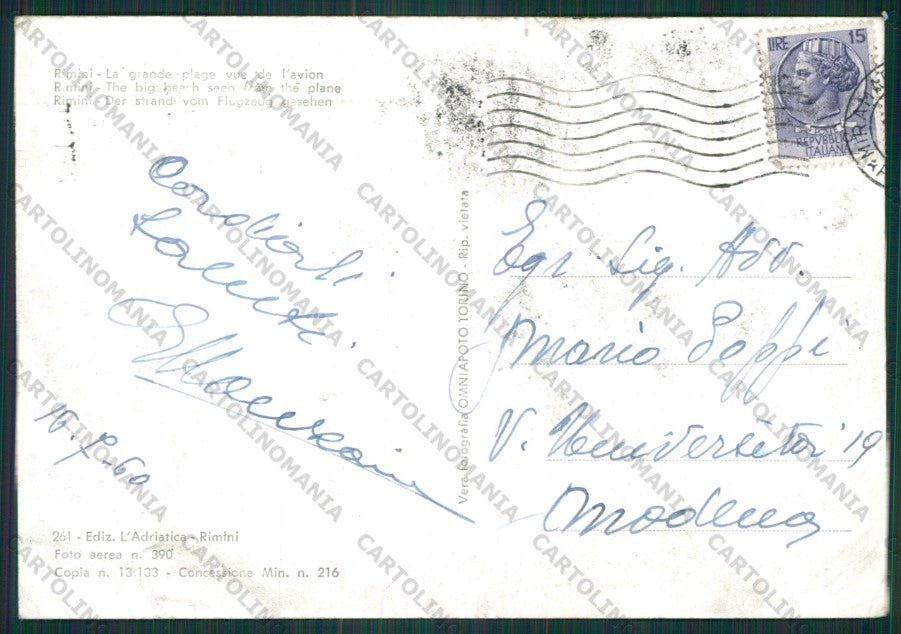 Rimini - La grande plage vue de l'avion
Rimini - The big beach seen from the plane
Rimini - Der strand vom Flugzeug gesehen
LIRE 15
REPVBBLICA
ITALIANA
Cordiali
Saluti
16.7.60
Egr. Sig. Avv.
Mario
V. Università 19
Modena
Vera fotografia OMNIAFOTO TORINO - Rip. vietata
261 - Ediz. L'Adriatica - Rimini
Foto aerea n. 390
Copia n. 13.133 - Concessione Min. n. 216
CARTOLINOMANIA